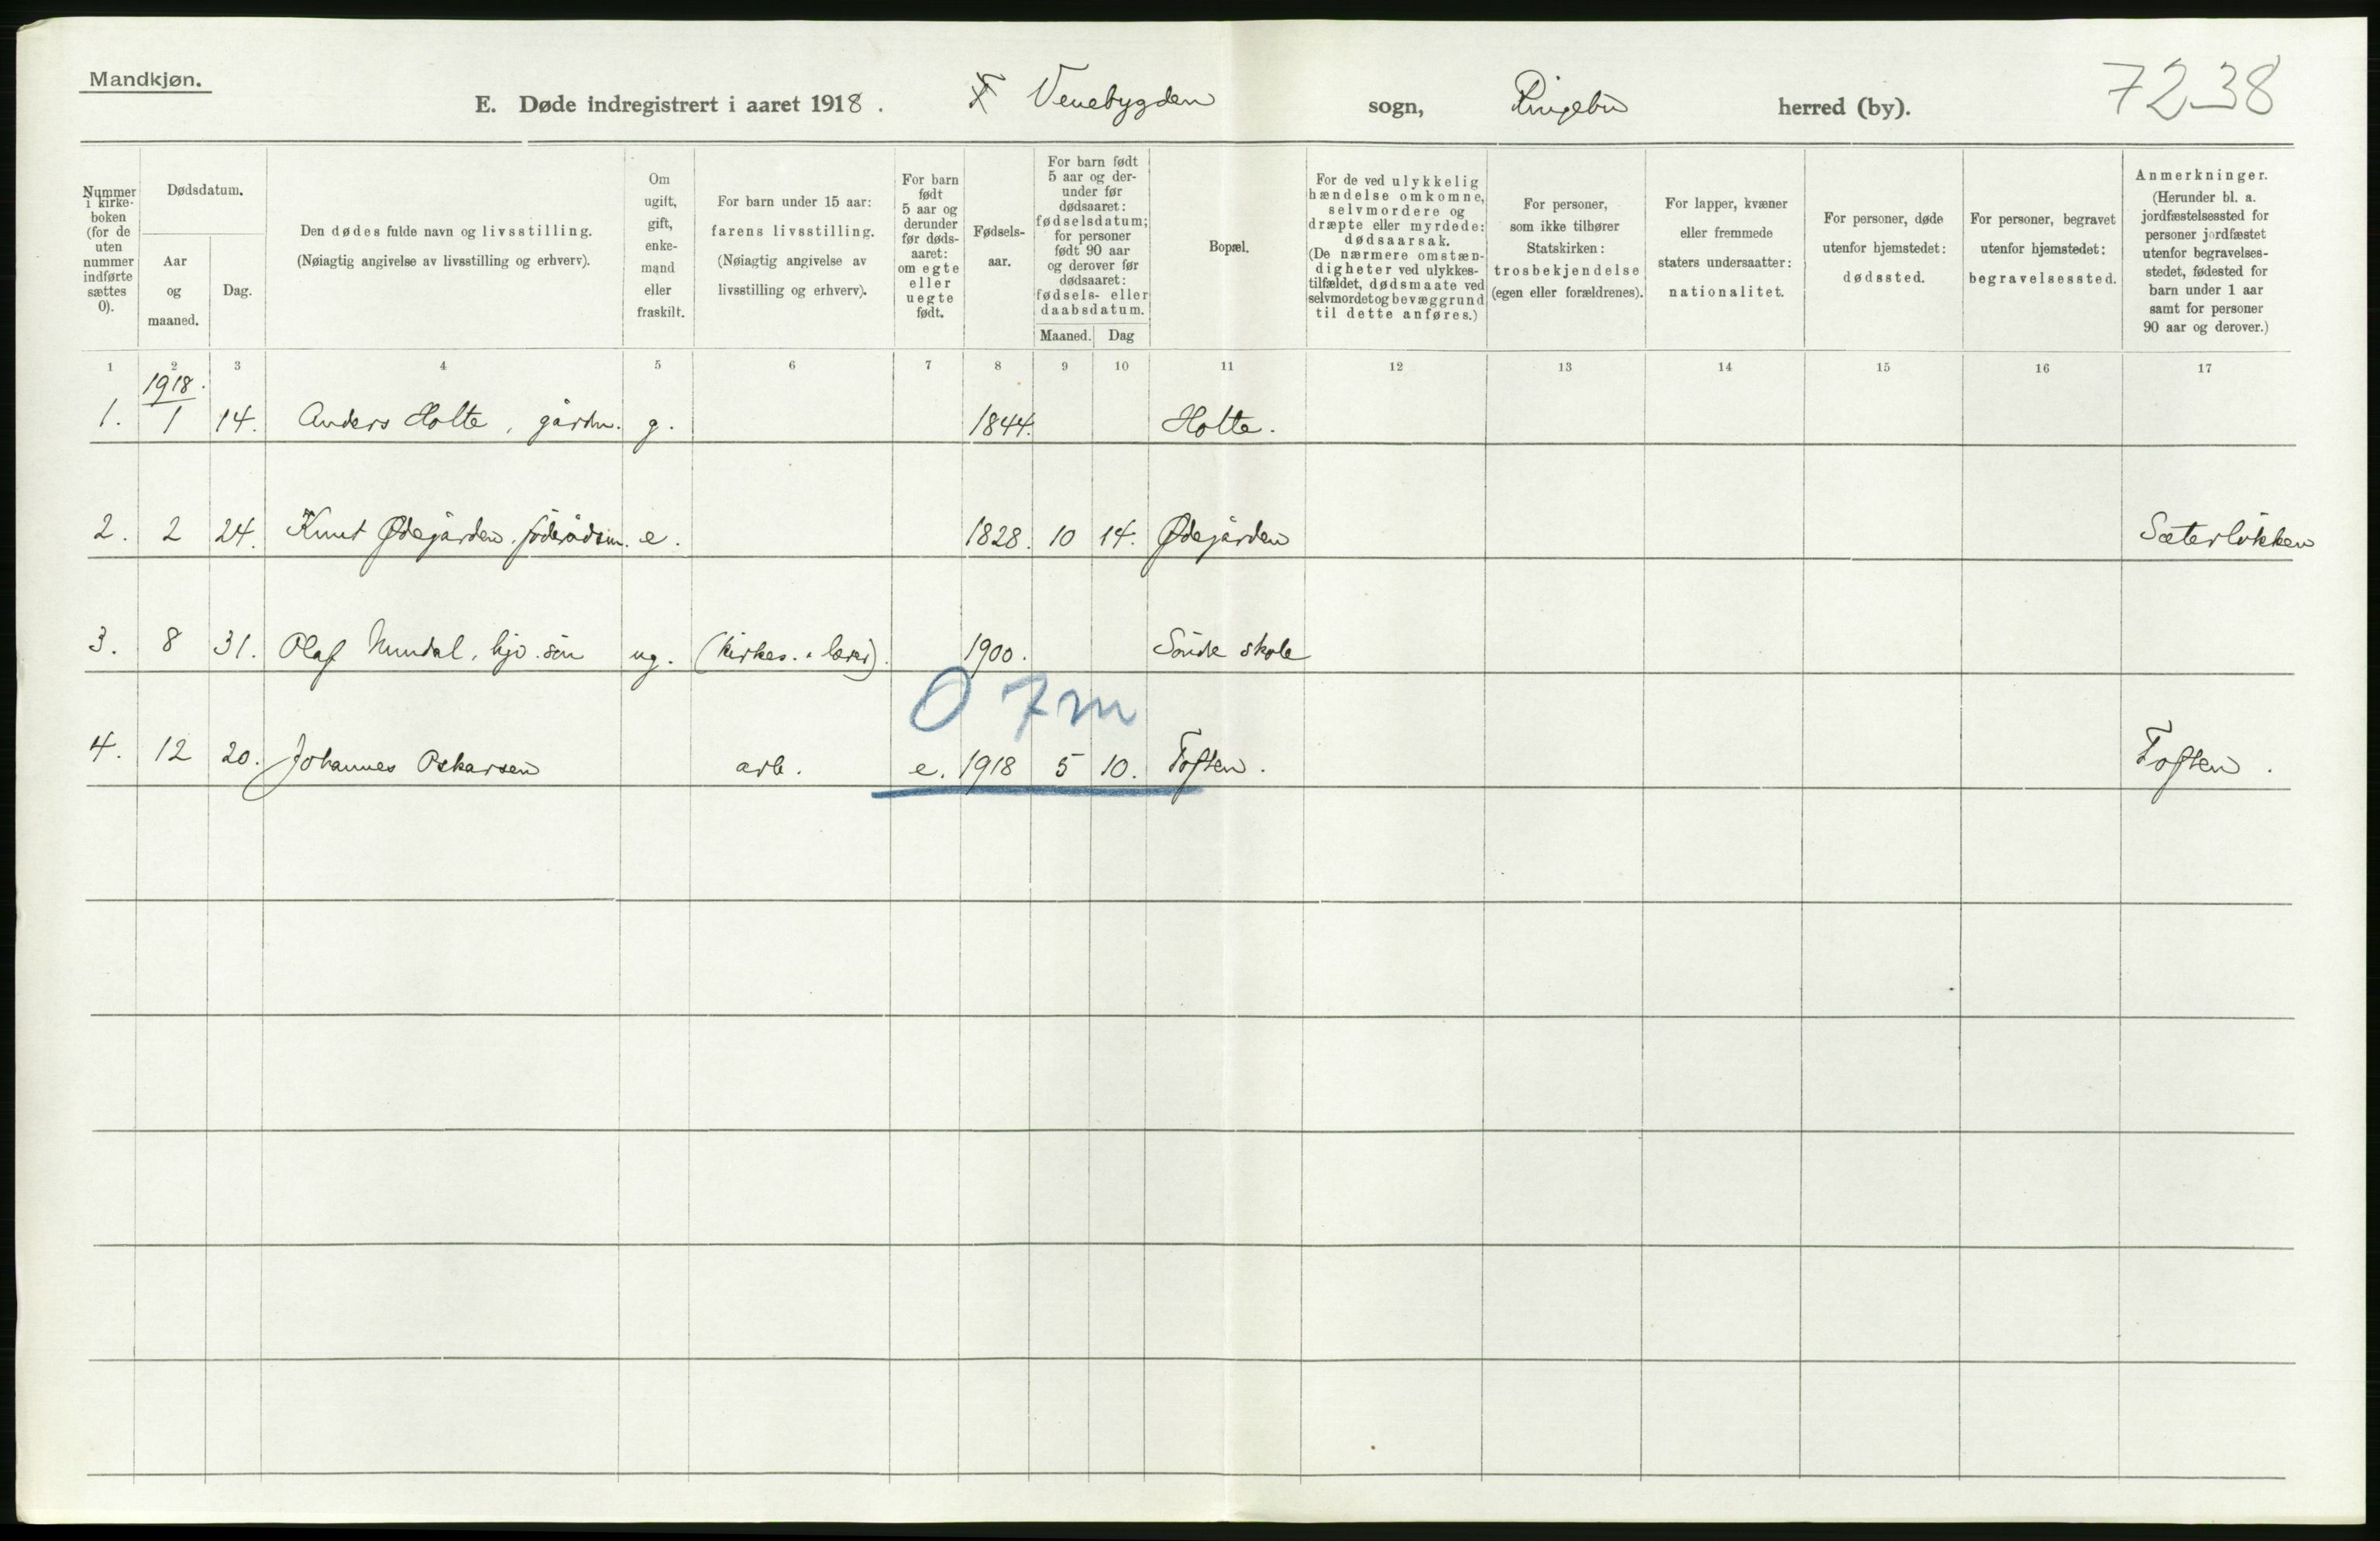 Mandkjøn.
E. Døde indregistrert i aaret 1918. Venebygden sogn, Ringebu herred (by). 7238
Nummer i kirke-boken (for de uten nummer indførte sættes 0).
Dødsdatum.
Aar og maaned.
Dag.
Den dødes fulde navn og livsstilling.
(Nøiagtig angivelse av livsstilling og erhverv).
Om ugift, gift, enke-mand eller fraskilt.
For barn under 15 aar: farens livsstilling.
(Nøiagtig angivelse av livsstilling og erhverv).
For barn født 5 aar og derunder før døds-aaret: om egte eller uegte født.
Fødsels-aar.
For barn født 5 aar og der-under før dødsaaret: fødselsdatum; for personer født 90 aar og derover før dødsaaret: fødsels- eller daabsdatum.
Maaned. Dag
Bopæl.
For de ved ulykkelig hændelse omkomne, selvmordere og dræpte eller myrdede: dødsaarsak.
(De nærmere omstæn-digheter ved ulykkes-tilfældet, dødsmaate ved selvmordet og bevæggrund til dette anføres.)
For personer, som ikke tilhører Statskirken: trosbekjendelse (egen eller forældrenes).
For lapper, kvæner eller fremmede staters undersaatter: nationalitet.
For personer, døde utenfor hjemstedet: dødssted.
For personer, begravet utenfor hjemstedet: begravelsessted.
Anmerkninger.
(Herunder bl. a. jordfæstelsessted for personer jordfæstet utenfor begravelses-stedet, fødested for barn under 1 aar samt for personer 90 aar og derover.)
1 2 3 4 5 6 7 8 9 10 11 12 13 14 15 16 17
1918.
1. 1 14. Anders Holte, gårdm. g. 1844. Holte.
2. 2 24. Knut Ødegården, föderådsm. e. 1828. 10 14. Ødegården Sæterlökken
3. 8 31. Olaf Nundal, hjv. sön ug. (kirkes. o lærer). 1900. Söndre skole
0 7m
4. 12 20. Johannes Oskarsen arb. e. 1918 5 10. Toften. Toften.